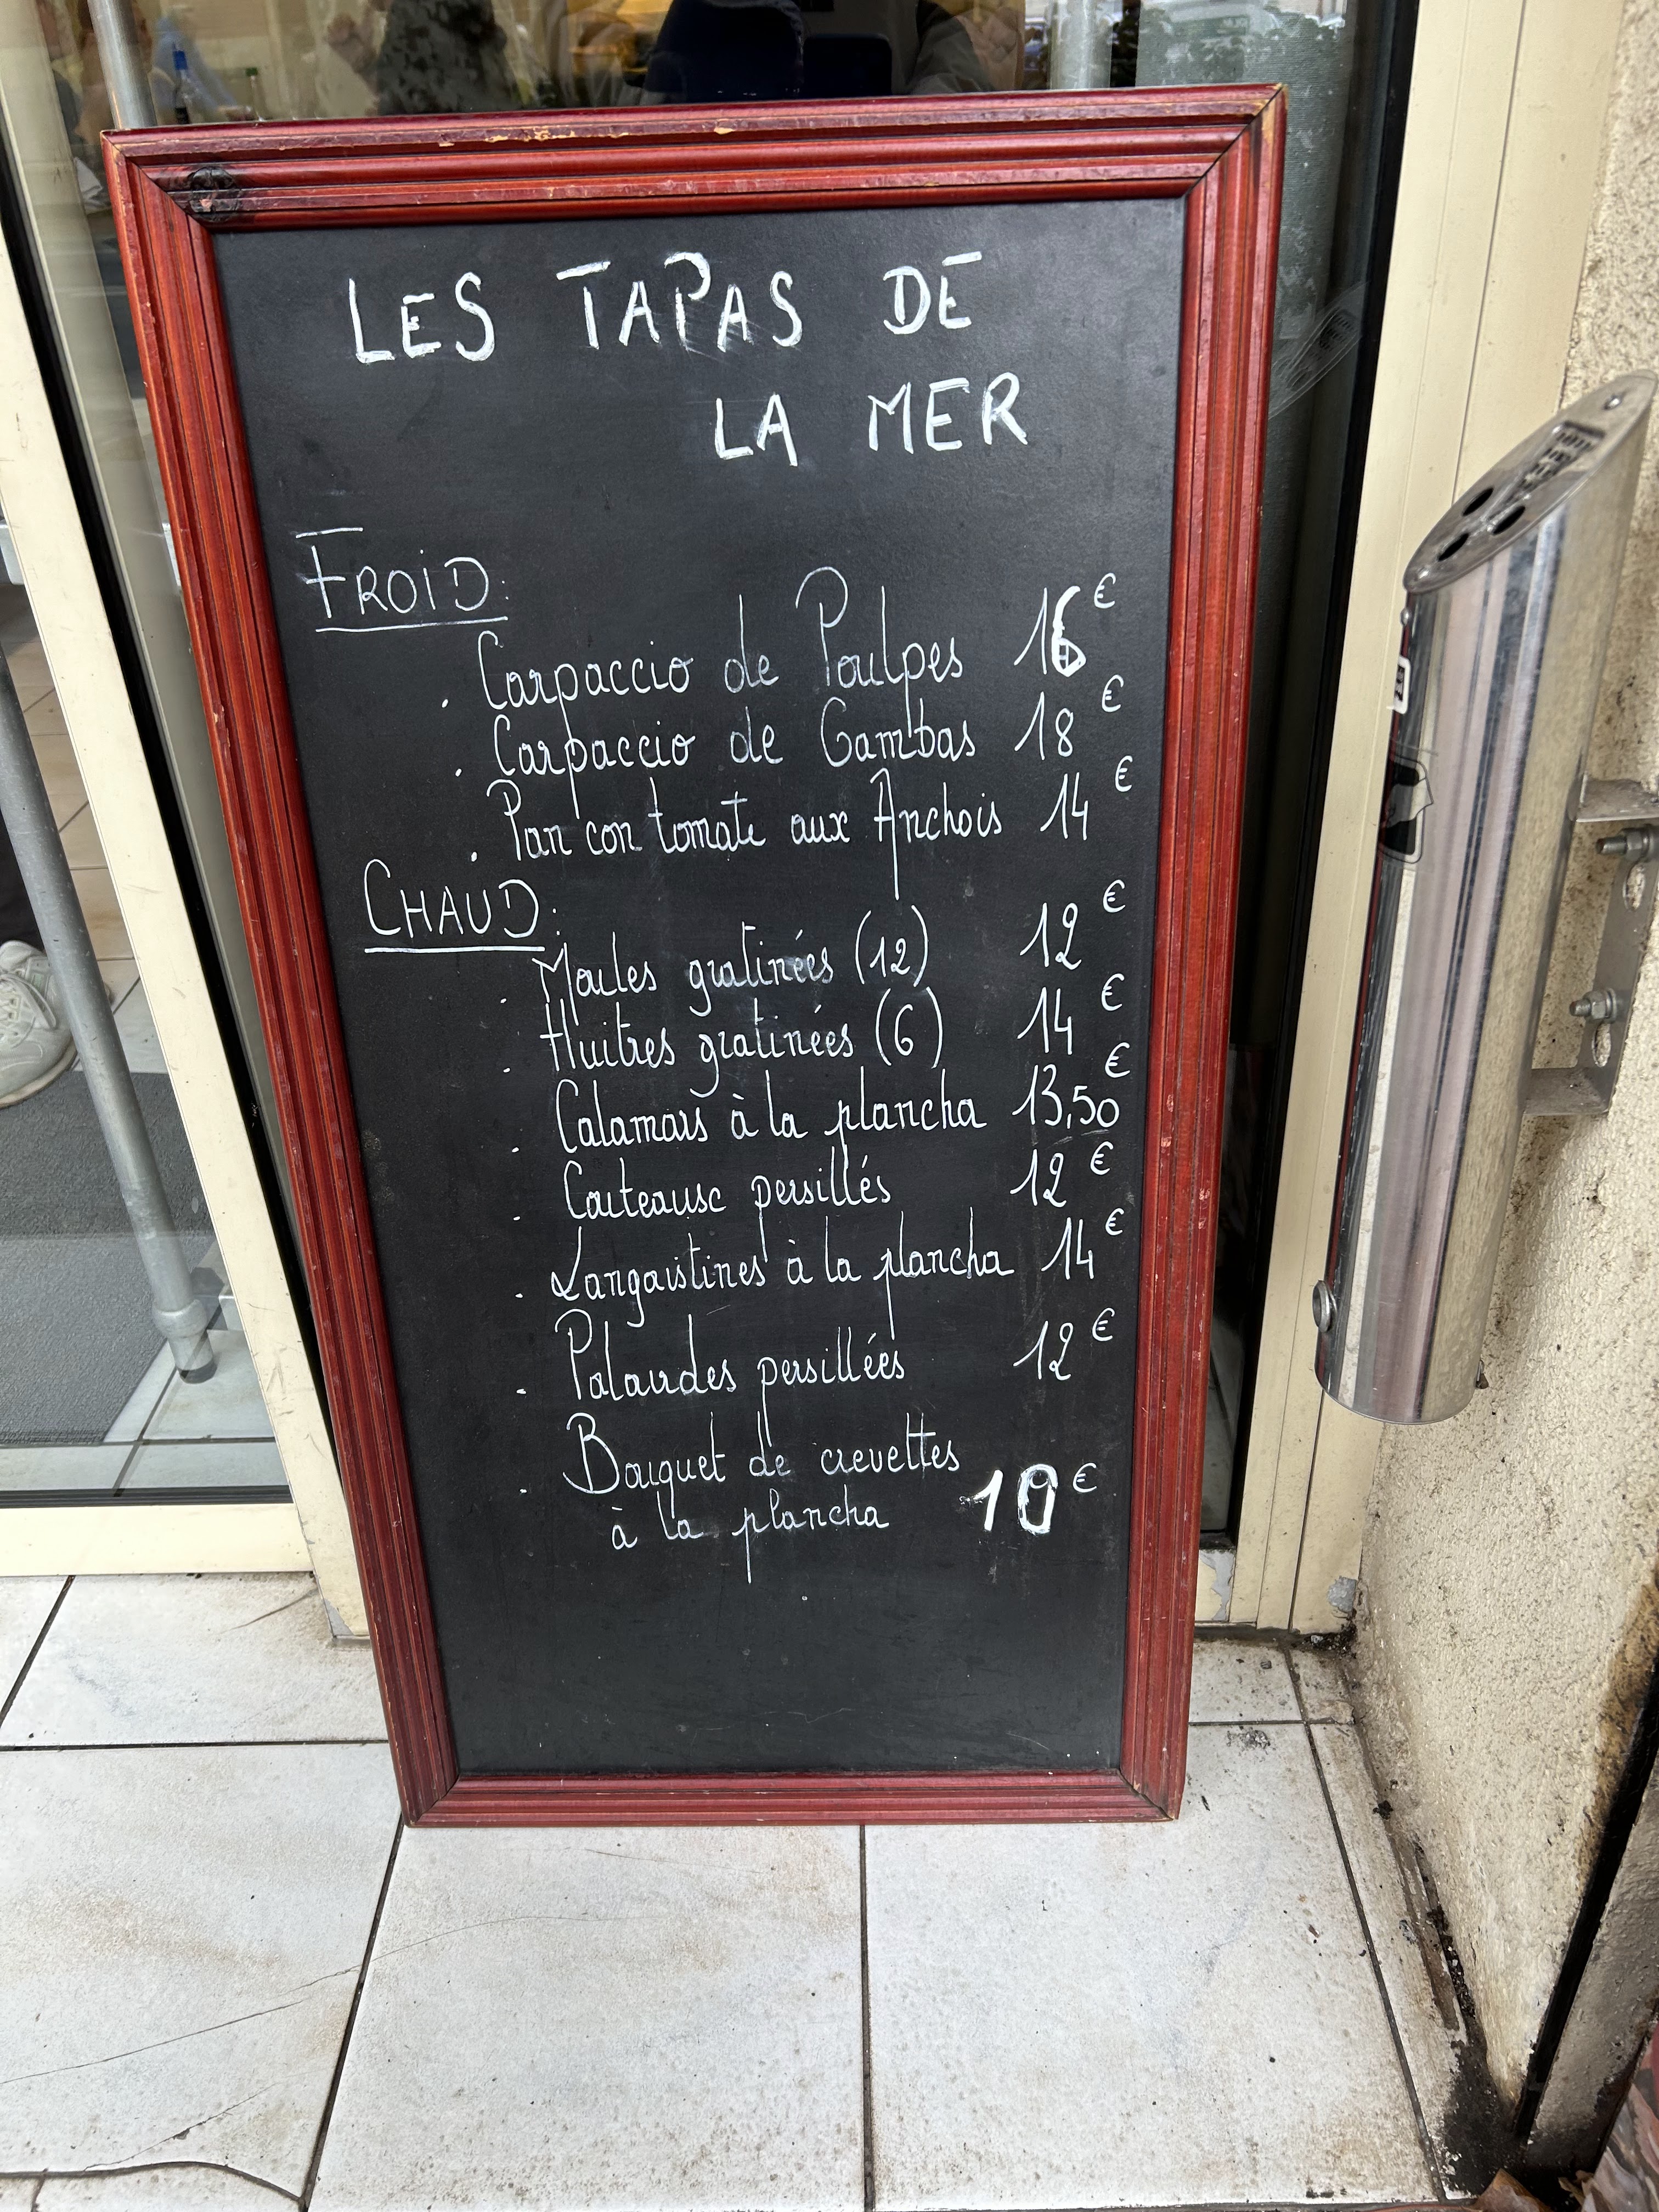 LES TAPAS DE
LA MER
FROID:
. Carpaccio de Poulpes 16€
. Carpaccio de Gambas 18€
. Pan con tomate aux Anchois 14€
CHAUD:
. Moules gratinées (12) 12€
. Huitres gratinées (6) 14€
. Calamars à la plancha 13,50€
. Couteaux persillés 12€
. Langoustines à la plancha 14€
. Palourdes persillées 12€
. Bouquet de crevettes
à la plancha 10€